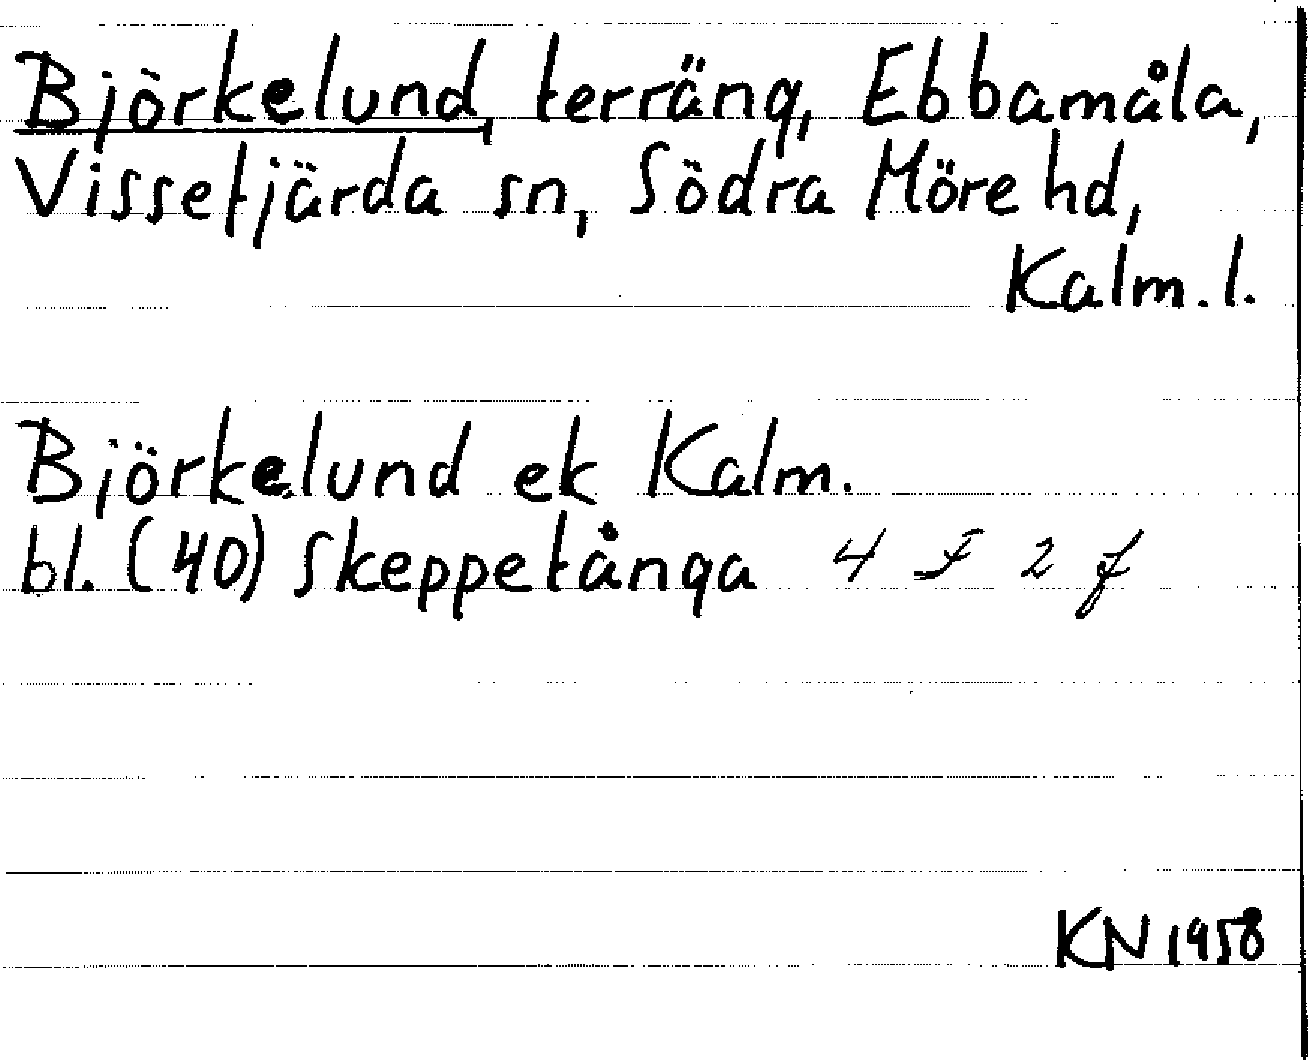 Björkelund, terräng, Ebbamåla,
Vissefjärda sn, Södra Möre hd,
Kalm. l.
Björkelund ek Kalm.
bl. (40) Skeppetånga 4 F 2 f
KN 1958